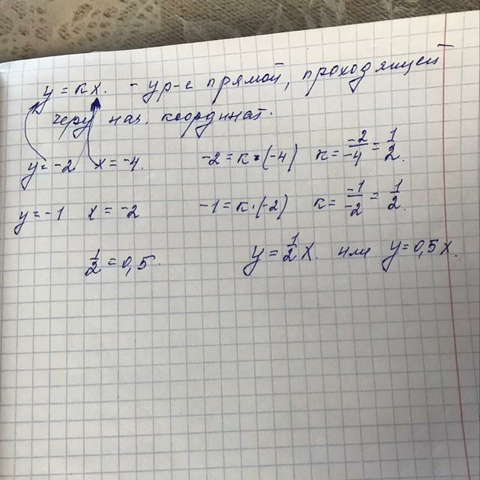 y = kx. - ур-е прямой, проходящей
через нач. координат.
y = -2 x = -4. -2 = k·(-4) k = -2/-4 = 1/2.
y = -1 x = -2 -1 = k·(-2) k = -1/-2 = 1/2.
1/2 = 0,5. y = 1/2 x. или y = 0,5x.